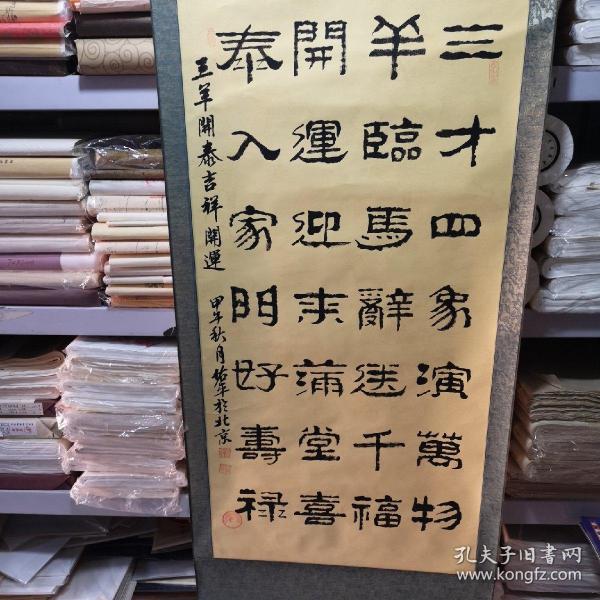 三才四象演萬物
羊臨馬辭送千福
開運迎来滿堂喜
泰入家門好壽禄
三羊開泰吉祥開運
甲午秋月於北京
孔夫子旧書网
www.kongfz.com